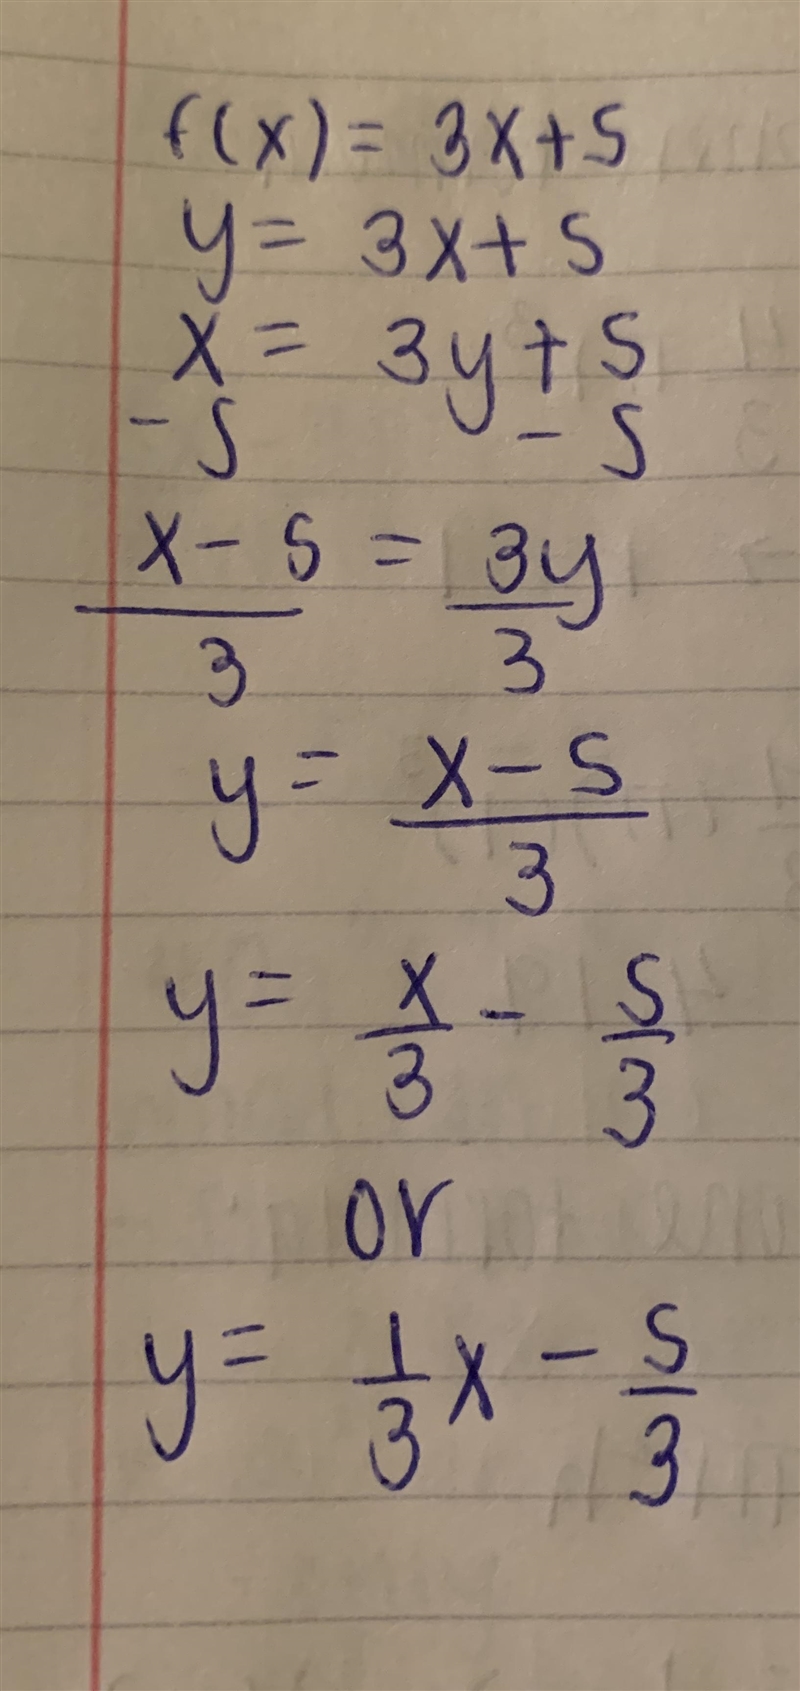 f(x) = 3x+5
y = 3x+5
x = 3y+5
-5 -5
x-5 = 3y
3 3
y = x-5
3
y = x/3 - 5/3
or
y = 1/3 x - 5/3